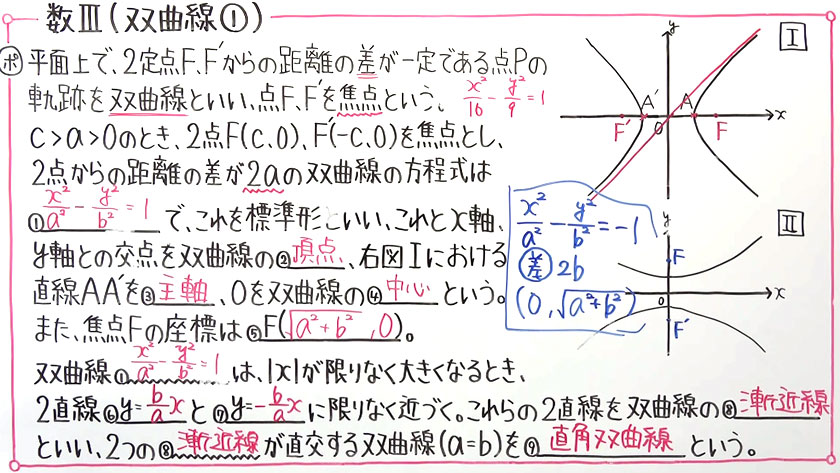 数Ⅲ(双曲線①)
ポ 平面上で、2定点F、F′からの距離の差が一定である点Pの
軌跡を双曲線といい、点F、F′を焦点という。 x²/16 - y²/9 = 1
c>a>0のとき、2点F(c,0)、F′(-c,0)を焦点とし、
2点からの距離の差が2aの双曲線の方程式は
① x²/a² - y²/b² = 1 で、これを標準形といい、これとx軸、
y軸との交点を双曲線の② 頂点、右図Ⅰにおける
直線AA′を③ 主軸、Oを双曲線の④ 中心 という。
また、焦点Fの座標は⑤ F(√a²+b², 0)。
双曲線① x²/a² - y²/b² = 1 は、|x|が限りなく大きくなるとき、
2直線⑥ y=b/a x と⑦ y=-b/a x に限りなく近づく。これらの2直線を双曲線の⑧ 漸近線
といい、2つの⑧ 漸近線 が直交する双曲線(a=b)を⑨ 直角双曲線 という。
Ⅰ
y
A′ A
F′ O F x
x²/a² - y²/b² = -1
差 2b
(0, √a²+b²)
Ⅱ
y
F
O x
F′